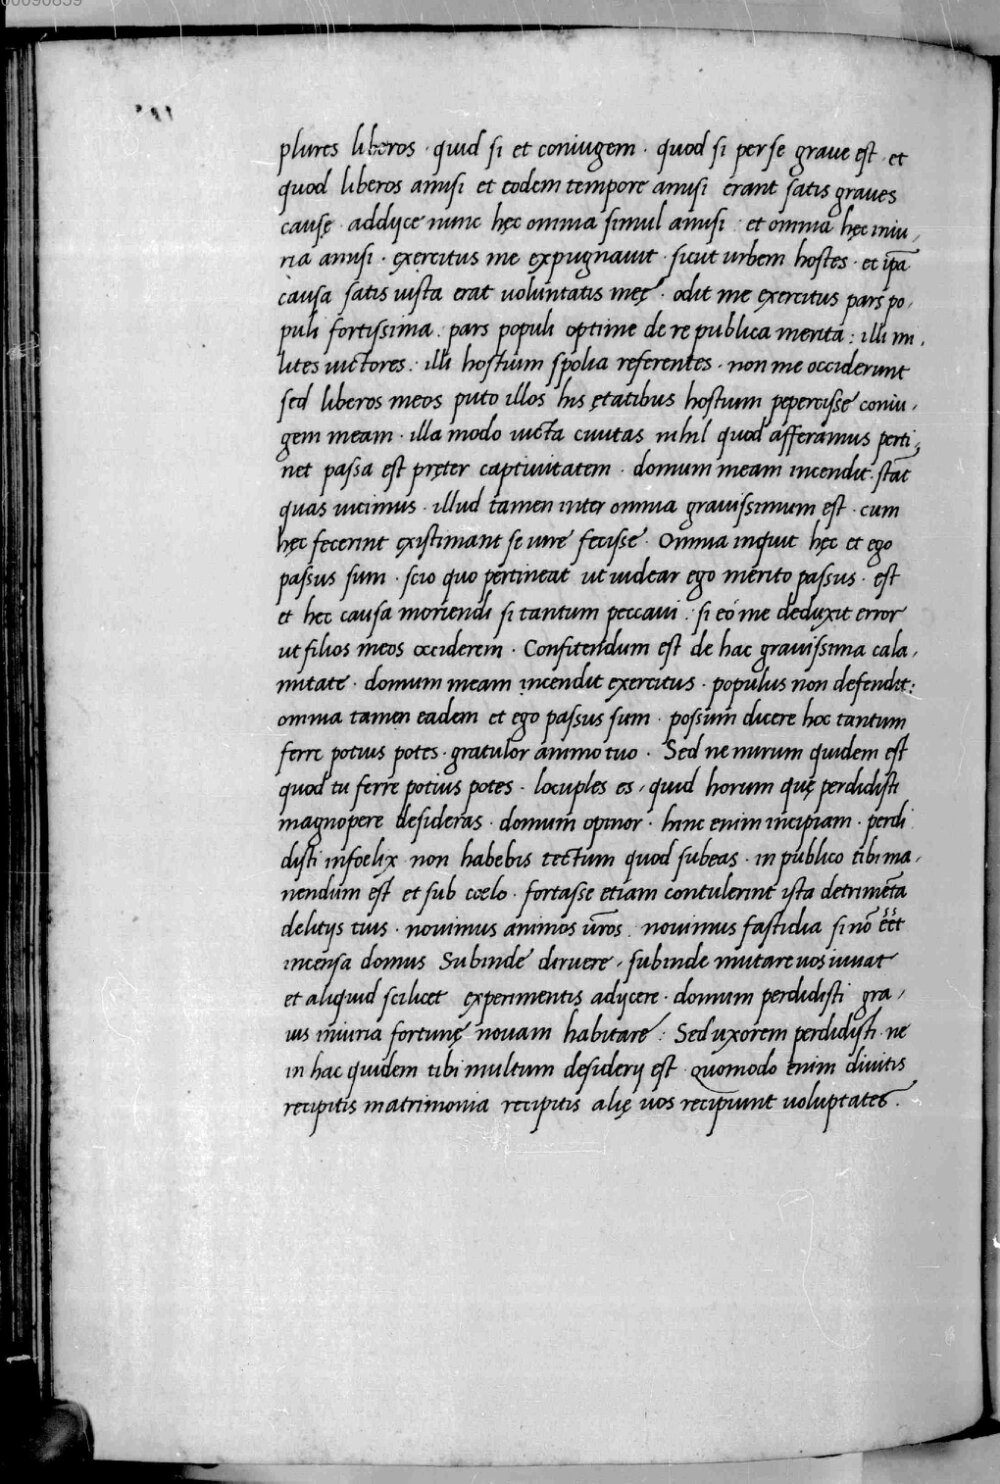 00090859
plures liberos · quid si et coniugem · quod si per se graue est · et
quod liberos amisi et eodem tempore amisi erant satis graues
causę · addyce nunc hęc omnia simul amisi · et omnia hęc iniu,
ria amisi · exercitus me expugnauit · sicut urbem hostes · et ip̄a
causa satis iusta erat uoluntatis meę · odit me exercitus pars po,
puli fortissima · pars populi optime de re publica merita : illi mi,
lites uictores · illi hostium spolia referentes · non me occiderunt
sed liberos meos puto illos his ętatibus hostium pepercisse coniu,
gem meam · illa modo uicta ciuitas nihil quod afferamus perti,
net passa est pręter captiuitatem · domum meam incendit · stāt
quas uicimus · illud tamen inter omnia grauissimum est · cum
hęc fecerint existimant se iure fecisse · Omnia inquit hęc et ego
passus sum · scio quo pertineat ut uidear ego merito passus · est
et hec causa moriendi si tantum peccaui · si eo me deduxit error
ut filios meos occiderem · Confitendum est de hac grauissima cala,
mitate · domum meam incendit exercitus · populus non defendit :
omnia tamen eadem et ego passus sum · possum dicere hoc tantum
ferre potius potes · gratulor animo tuo · Sed ne mirum quidem est
quod tu ferre potius potes · locuples es, quid horum quę perdidisti
magnopere desideras · domum opinor · hinc enim incipiam · perdi
disti infoelix · non habebis tectum quod subeas · in publico tibi ma,
nendum est et sub coelo · fortasse etiam contulerint ista detrimēta
delitijs tuis · nouimus animos ūros · nouimus fastidia si nō eēt
incensa domus Subinde diruere, subinde mutare uos iuuat
et aliquid scilicet experimentis adijcere · domum perdidisti gra,
uis iniuria fortunę nouam habitare · Sed uxorem perdidisti · ne
in hac quidem tibi multum desiderij est · quomodo enim diuitis
recipitis matrimonia recipitis alię uos recipiunt uoluptates ·